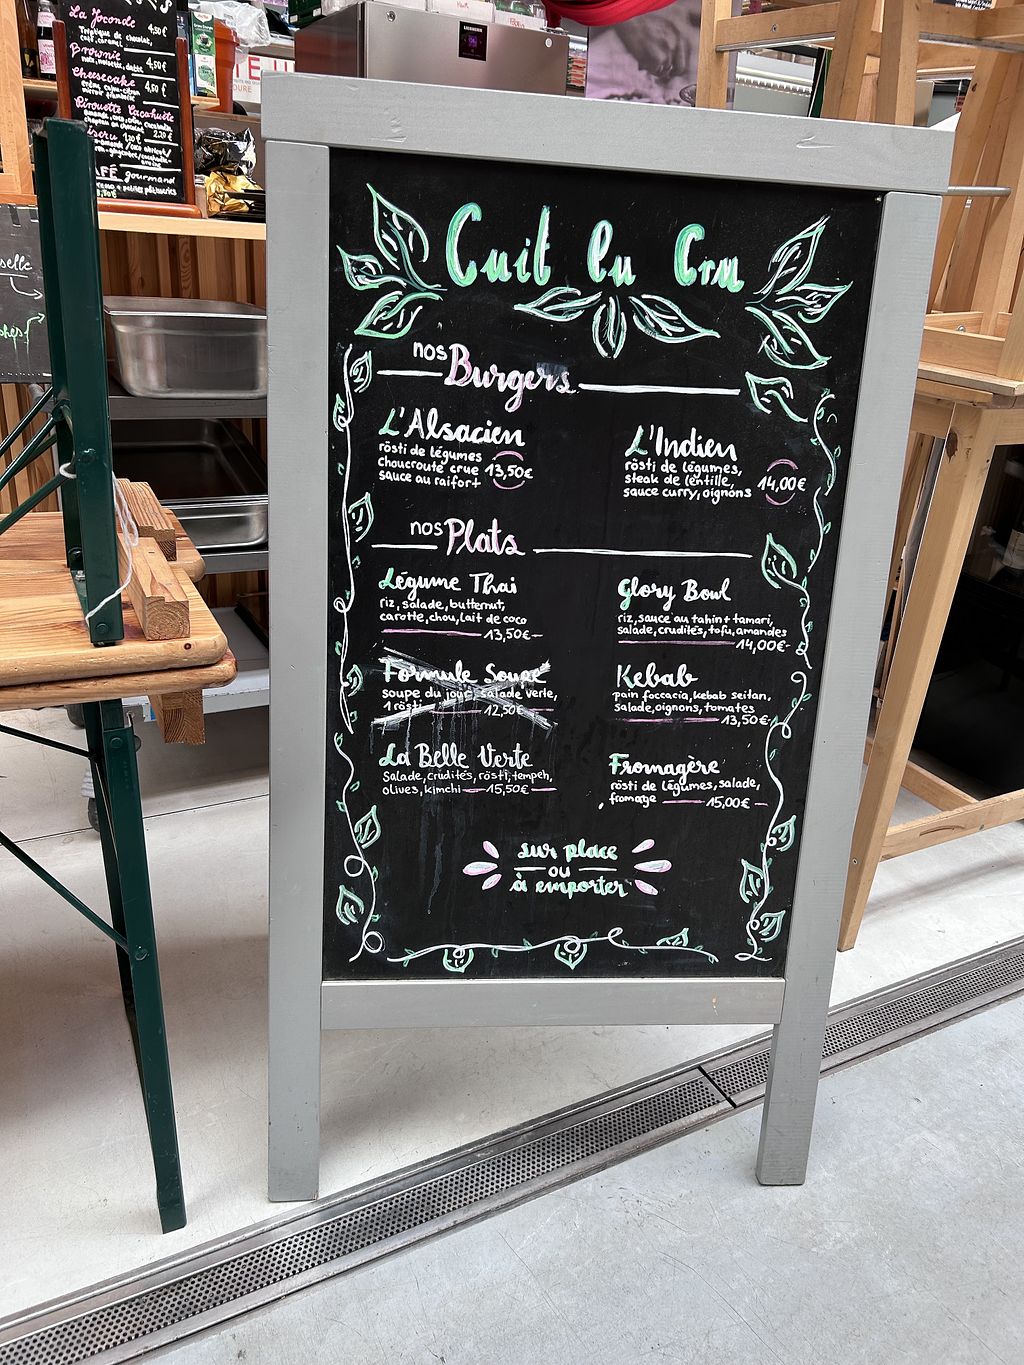 La Joconde
4,50€
Brownie
noix, noisette, datte
4,50€
Cheesecake
4,50€
Pirouette Cacahuète
gourmand
Cuit lu Cru
nos Burgers
L'Alsacien
rösti de légumes
choucroute crue 13,50€
sauce au raifort
L'Indien
rösti de légumes,
steak de lentille, 14,00€
sauce curry, oignons
nos Plats
Légume Thai
riz, salade, butternut,
carotte, chou, lait de coco
13,50€
Glory Bowl
riz, sauce au tahin + tamari,
salade, crudités, tofu, amandes
14,00€
Formule Soupe
soupe du jour, salade verte,
1 rösti 12,50€
Kebab
pain foccacia, kebab seitan,
salade, oignons, tomates
13,50€
La Belle Verte
Salade, crudités, rösti, tempeh,
olives, kimchi 15,50€
Fromagère
rösti de légumes, salade,
fromage 15,00€
sur place
ou
à emporter